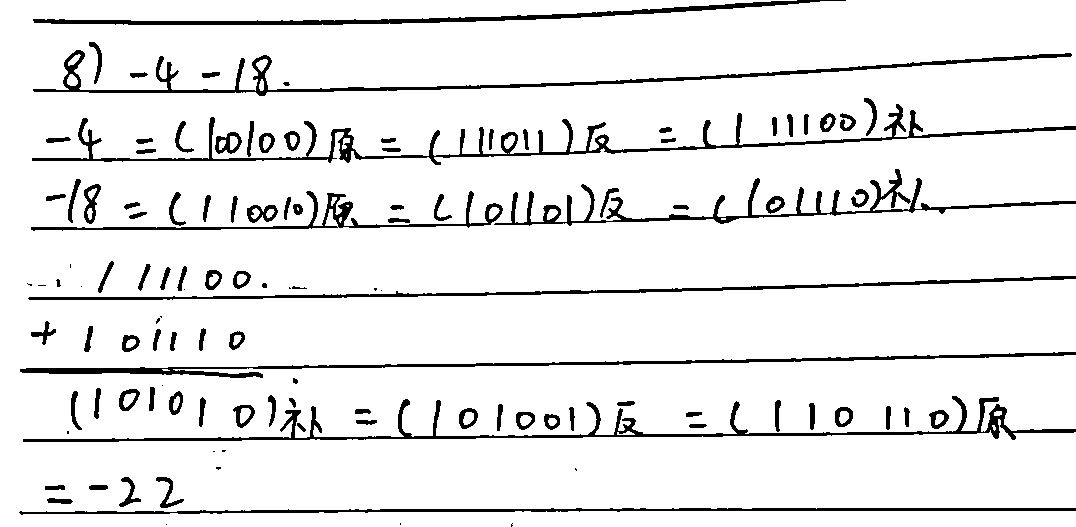 8) -4 -18.
-4 = (100100)原 = (111011)反 = (111100)补
-18 = (110010)原 = (101101)反 = (101110)补
111100.
+ 101110
(101010)补 = (101001)反 = (110110)原
= -22